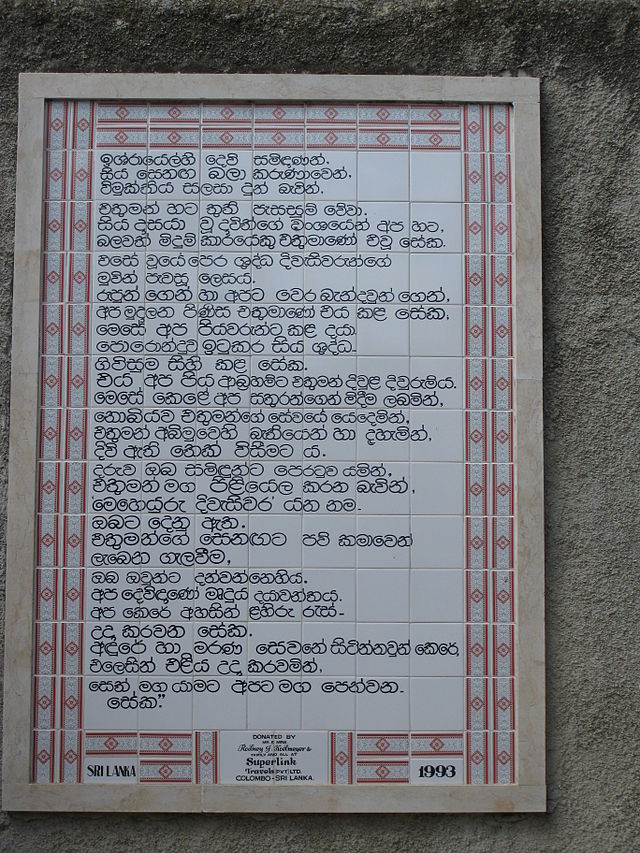 ඉශ්රායෙල්හි දෙව් සමිඳාණන්,
සිය සෙනඟ බලා කරුණාවෙන්,
විමුක්තිය සලසා දුන් බැවින්,
එතුමන් හට තුති පැසසුම් වේවා.
සිය දාසයා වූ දාවිත්ගේ වංශයෙන් අප හට,
බලවත් මිදුම් කාරයෙකු එතුමාණෝ එවූ සේක.
එසේ වූයේ පෙර ශුද්ධ දිවැසිවරුන්ගේ
මුවින් පැවසූ ලෙසය.
රුපුන් ගෙන් හා අපට වෛර බැන්දවුන් ගෙන්,
අප මුදලන පිණිස එතුමාණෝ එය කළ සේක;
මෙසේ අප පියවරුන්ට කළ දයා
පොරොන්දුව ඉටුකර සිය ශුද්ධ
ගිවිසුම සිහි කළ සේක.
එය, අප පිය ආබ්‍රහම්ට එතුමන් දිවුළ දිවුරුමය.
මෙසේ කෙළේ අප සතුරන්ගෙන් මිදීම ලබමින්,
නොබියව එතුමන්ගේ සේවයේ යෙදෙමින්,
එතුමන් අබිමුවෙහි බැතියෙන් හා දැහැමින්,
දිවි ඇති තෙක් විසීමට ය.
දරුව ඔබ සමිඳුන්ට පෙරටුව යමින්,
එතුමන් මග පිළියෙල කරන බැවින්,
'මෙහෙයුරු දිවැසිවර' යන නම
ඔබට දෙනු ඇත.
එතුමන්ගේ සෙනඟට පව් කමාවෙන්
ලැබෙන ගැලවීම,
ඔබ ඔවුන්ට දන්වන්නෙහිය.
අප දෙවිඳාණෝ මෘදුය දයාවන්තය.
අප කෙරේ අහසින් ළහිරු රැස්
උදා කරවන සේක.
අඳුරේ හා මරණ සෙවනේ සිටින්නවුන් කෙරේ,
එලෙසින් එළිය උදා කරවමින්,
සෙත් මග යාමට අපට මග පෙන්වන
සේක."
DONATED BY
MR & MRS
Rodney J.
FAMILY AND ALL AT
Superlink
Travels PVT LTD.
COLOMBO - SRI LANKA.
SRI LANKA
1993